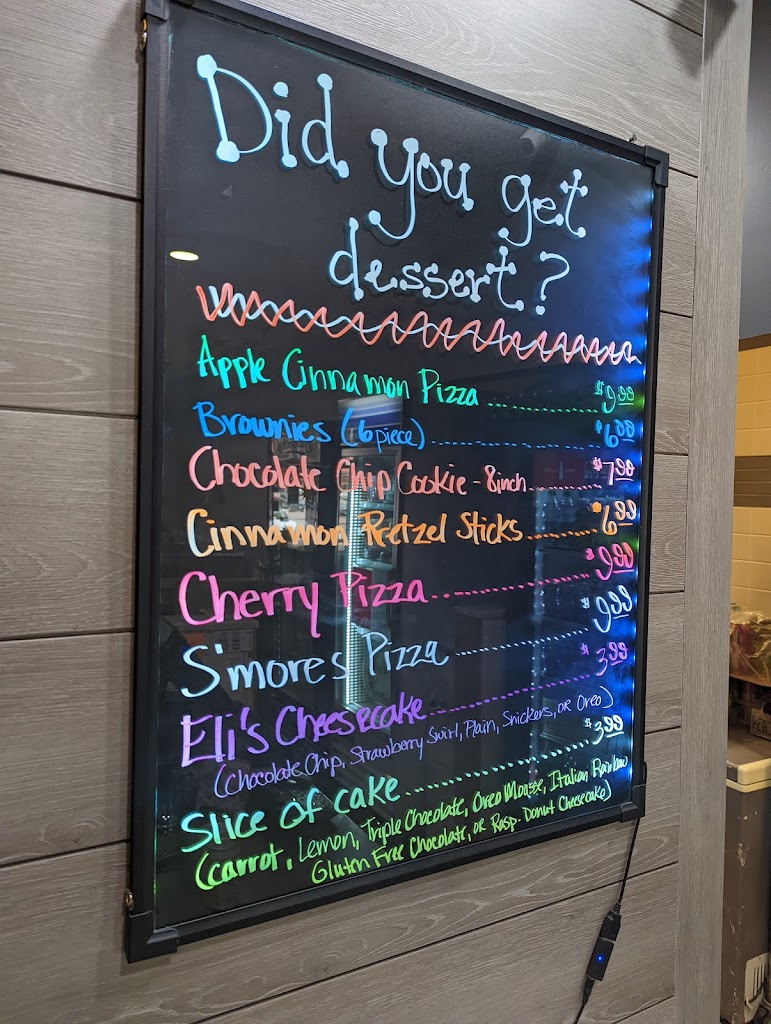 Did you get
dessert?
Apple Cinnamon Pizza ........... $9.99
Brownies (6 piece) ........... $6.00
Chocolate Chip Cookie - 8inch ........... $7.99
Cinnamon Pretzel Sticks ........... $6.99
Cherry Pizza ........... $9.99
S'mores Pizza ........... $9.99
Eli's Cheesecake ........... $3.99
(Chocolate Chip, Strawberry Swirl, Plain, Snickers, or Oreo)
Slice of cake ........... $3.99
(carrot, Lemon, Triple Chocolate, Oreo Mousse, Italian Rainbow
Gluten Free Chocolate, or Rasp. Donut Cheesecake)